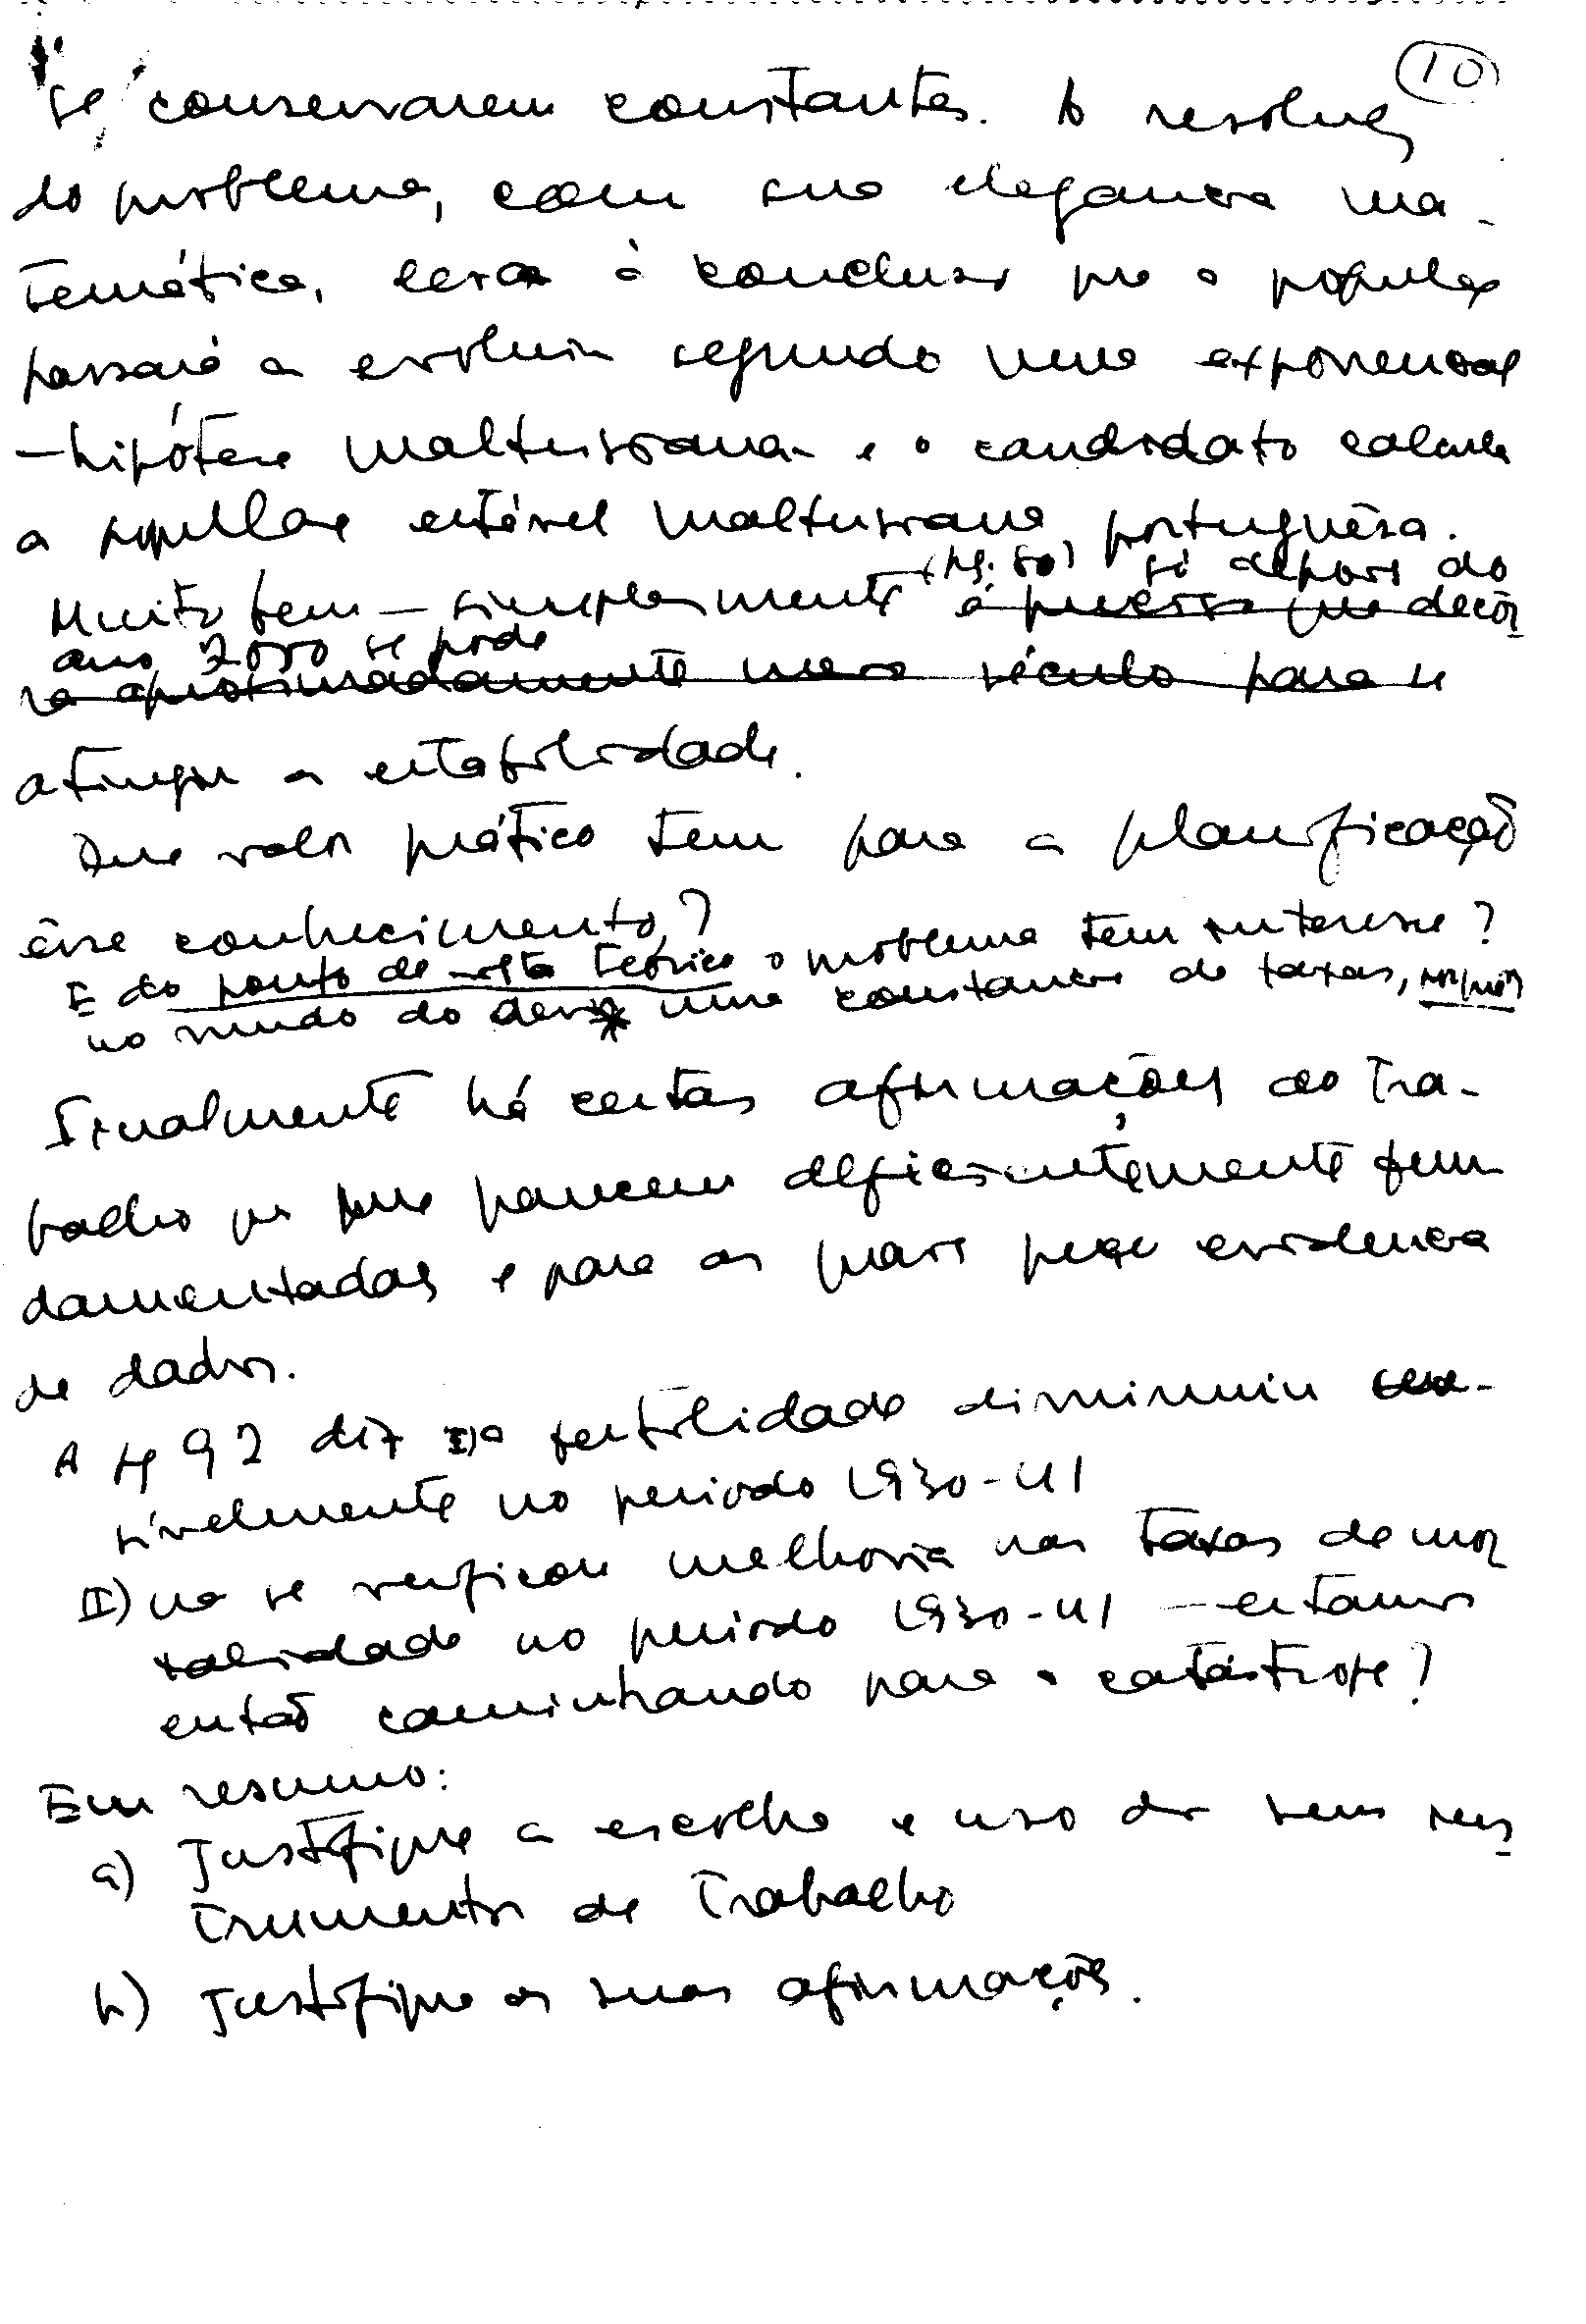 10
se conservarem constantes. A resolução
do problema, com sua elegancia ma-
temática, leva à conclusão que a população
passará a evoluir segundo uma exponencial
— hipótese maltusiana — e o candidato calcula
a população estável maltusiana portuguêsa.
(pg. 80) só depois do
Muito bem — simplesmente é preciso que decor
ano 2050 se pode
ra aproximadamente meio século para se
atingir a estabilidade.
Que valor prático tem para a planificação
êsse conhecimento?
E do ponto de vista teórico o problema tem interesse?
no mundo do devir uma constancia de taxas,
Finalmente há certas afirmações do tra-
balho que me parecem deficientemente fun
damentadas e para as quais peço evidencia
de dados.
A pg 92 diz I) a fertilidade diminuiu sen-
sívelmente no periodo 1930-41
II) não se verificou melhoria nas taxas de mor
talidade no periodo 1930-41 — estamos
então caminhando para a catástrofe?
Em resumo:
a) Justifique a escolha e uso dos seus ins
trumentos de trabalho
b) Justifique as suas afirmações.